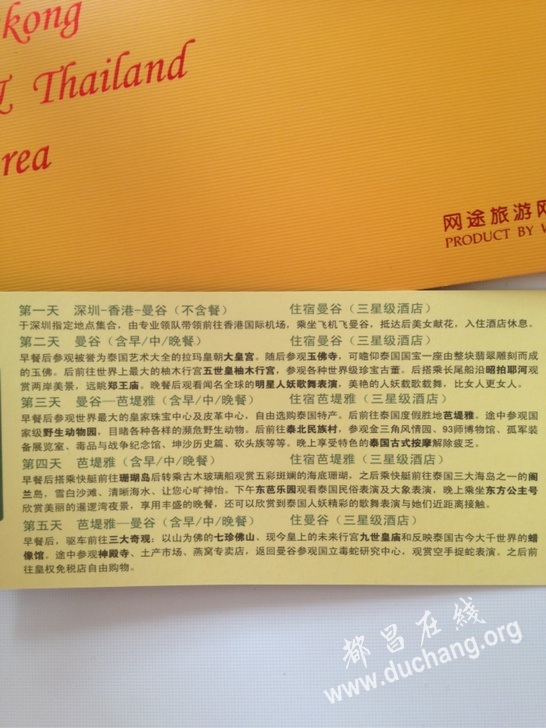 kong
Thailand
rea
网途旅游网
PRODUCT BY W
第一天 深圳-香港-曼谷(不含餐) 住宿曼谷(三星级酒店)
于深圳指定地点集合，由专业领队带领前往香港国际机场，乘坐飞机飞曼谷，抵达后美女献花，入住酒店休息。
第二天 曼谷(含早/中/晚餐) 住宿曼谷(三星级酒店)
早餐后参观被誉为泰国艺术大全的拉玛皇朝大皇宫。随后参观玉佛寺，可瞻仰泰国国宝一座由整块翡翠雕刻而成
的玉佛。后前往世界上最大的柚木行宫五世皇柚木行宫，参观各种世界级珍宝古董，后搭乘长尾船沿昭拍耶河观
赏两岸美景，远眺郑王庙。晚餐后观看闻名全球的明星人妖歌舞表演，美艳的人妖载歌载舞，比女人更女人。
第三天 曼谷—芭堤雅(含早/中/晚餐) 住宿芭堤雅(三星级酒店)
早餐后参观世界最大的皇家珠宝中心及皮革中心，自由选购泰国特产。后前往泰国度假胜地芭堤雅。途中参观国
家级野生动物园，目睹各种各样的濒危野生动物。后前往泰北民族村，参观金三角风情园、93师博物馆、孤军装
备展览室、毒品与战争纪念馆、坤沙历史篇、砍头族等等。晚上享受特色的泰国古式按摩解除疲乏。
第四天 芭堤雅(含早/中/晚餐) 住宿芭堤雅(三星级酒店)
早餐后搭乘快艇前往珊瑚岛后转乘古木玻璃船观赏五彩斑斓的海底珊瑚，之后乘快艇前往泰国三大海岛之一的阁
兰岛，雪白沙滩、清晰海水、让您心旷神怡。下午东芭乐园观看泰国民俗表演及大象表演，晚上乘坐东方公主号
欣赏美丽的暹逻湾夜景，享用丰盛的晚餐，还可以欣赏到泰国人妖精彩的歌舞表演与她们近距离接触。
第五天 芭堤雅-曼谷(含早/中/晚餐) 住曼谷(三星级酒店)
早餐后，驱车前往三大奇观：以山为佛的七珍佛山、现今皇上的未来行宫九世皇庙和反映泰国古今大千世界的蜡
像馆。途中参观神殿寺、土产市场、燕窝专卖店，返回曼谷参观国立毒蛇研究中心，观赏空手捉蛇表演。之后前
往皇权免税店自由购物。
都昌在线
www.duchang.org